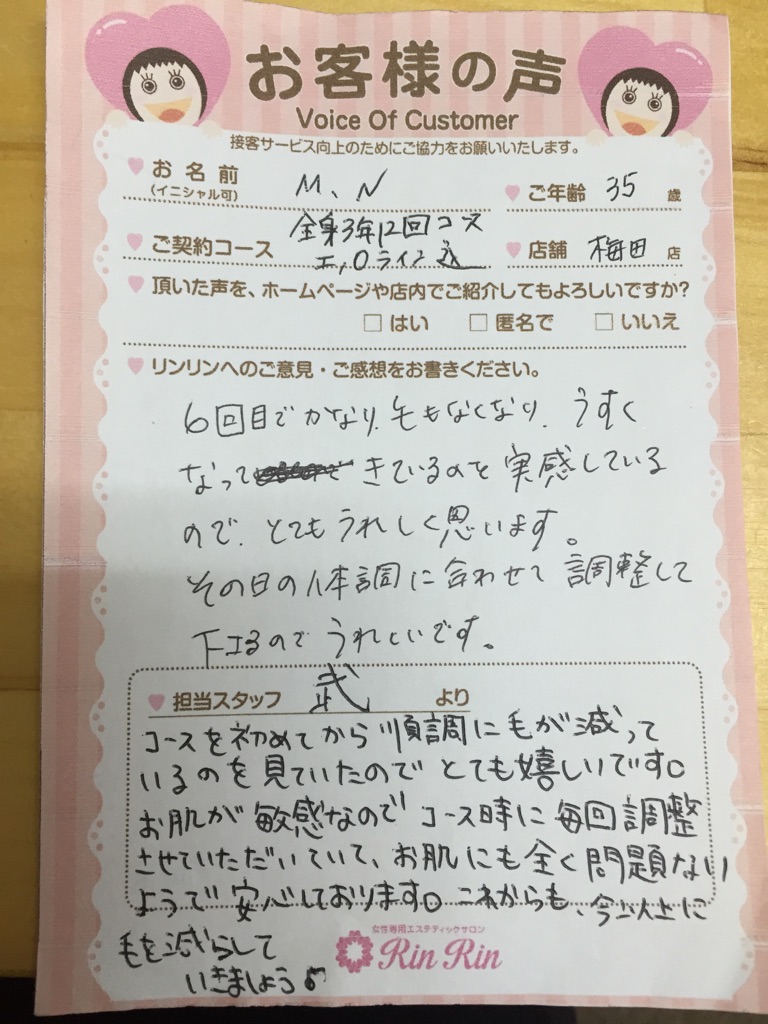 お客様の声
Voice Of Customer
接客サービス向上のためにご協力をお願いいたします。
お名前 M、N ご年齢 35 歳
(イニシャル可)
全身3年12回コース
ご契約コース エ,Oライン込 店舗 梅田 店
頂いた声を、ホームページや店内でご紹介してもよろしいですか?
□ はい □ 匿名で □ いいえ
リンリンへのご意見・ご感想をお書きください。
6回目でかなり、毛もなくなり、うすく
なって きているのを実感している
ので、とてもうれしく思います。
その日の体調に合わせて調整して
下エるので うれしいです。
担当スタッフ 武 より
コースを初めてから順調に毛が減って
いるのを見ていたので とても嬉しいです。
お肌が敏感なので コース時に毎回調整
させていただいていて、お肌にも全く問題ない
ようで安心しております。これからも、今以上に
毛を減らして
いきましょう♪
女性専用エステティックサロン
Rin Rin